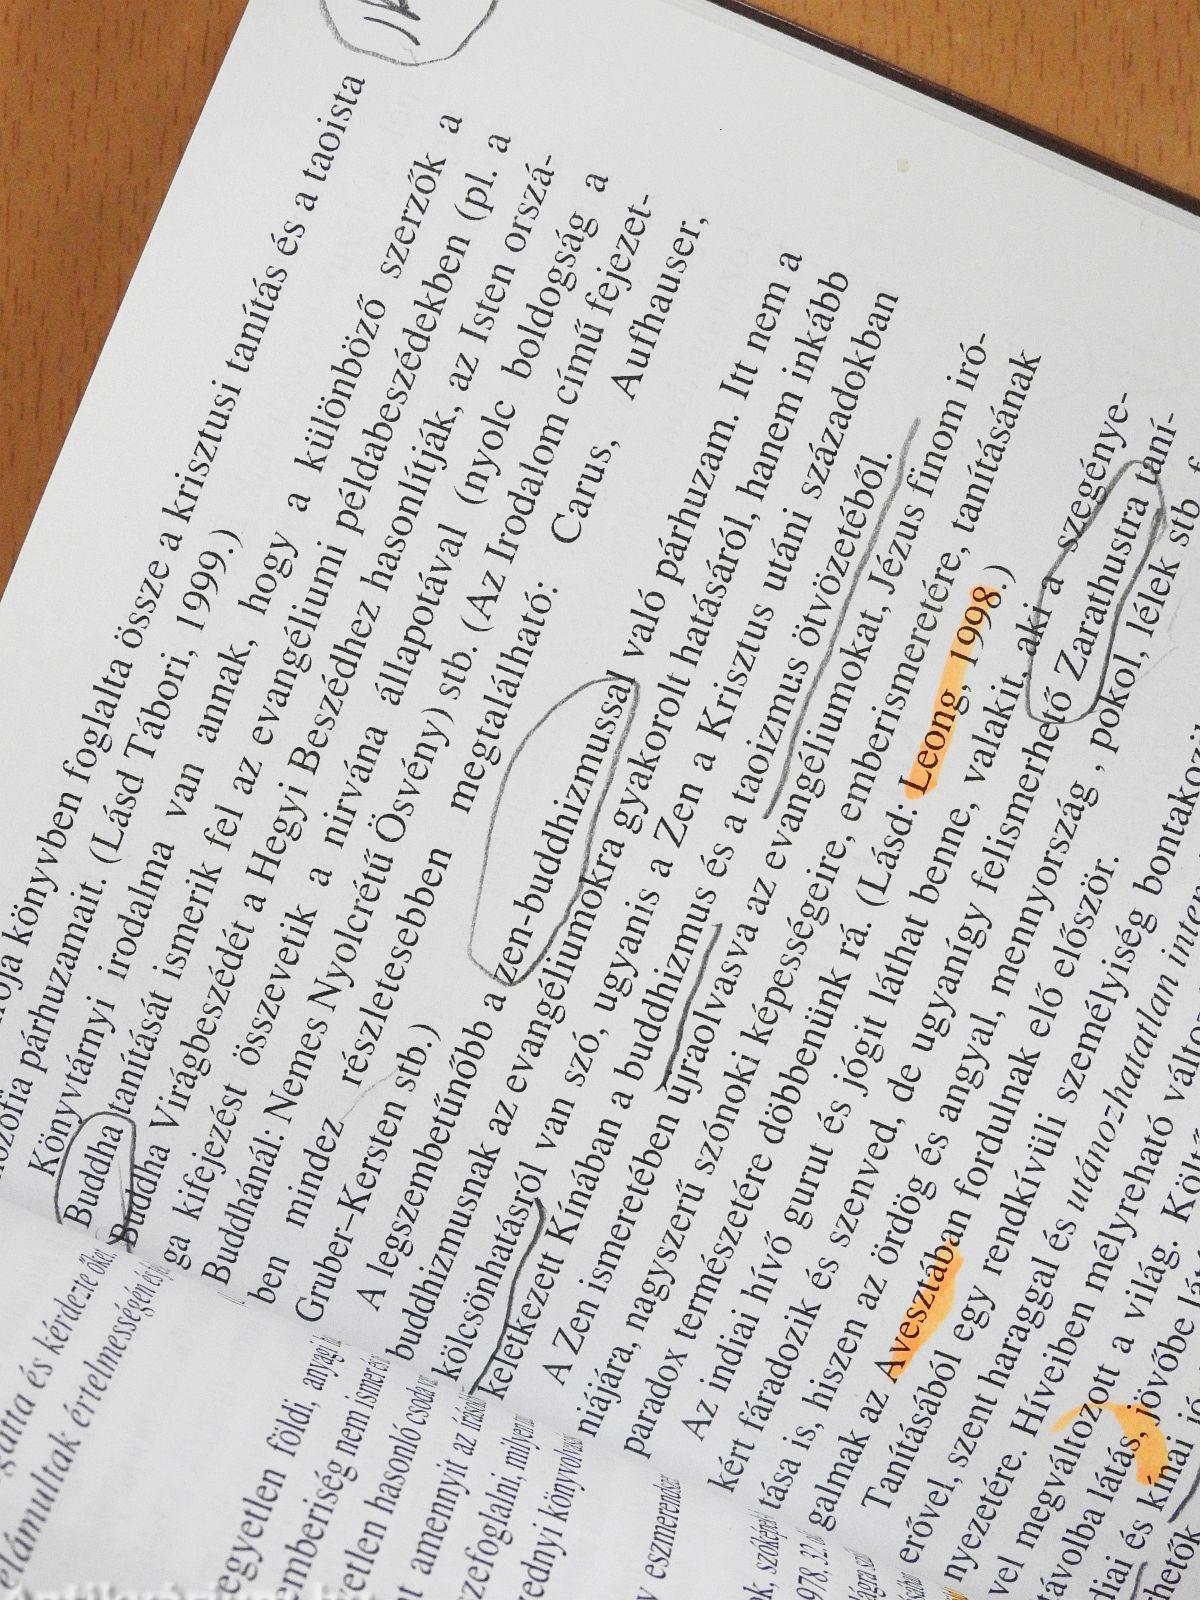 könyvben foglalta össze a krisztusi tanítás és a taoista
párhuzamait. (Lásd Tábori, 1999.)
Könyvtárnyi irodalma van annak, hogy a különböző szerzők a
Buddha tanítását ismerik fel az evangéliumi példabeszédekben (pl. a
Buddha Virágbeszédét a Hegyi Beszédhez hasonlítják, az Isten orszá-
ga kifejezést összevetik a nirvána állapotával (nyolc boldogság a
Buddhánál: Nemes Nyolcrétű Ösvény) stb. (Az Irodalom című fejezet-
ben mindez részletesebben megtalálható: Carus, Aufhauser,
Gruber–Kersten stb.)
A legszembetűnőbb a zen-buddhizmussal való párhuzam. Itt nem a
buddhizmusnak az evangéliumokra gyakorolt hatásáról, hanem inkább
kölcsönhatásról van szó, ugyanis a Zen a Krisztus utáni századokban
keletkezett Kínában a buddhizmus és a taoizmus ötvözetéből.
A Zen ismeretében újraolvasva az evangéliumokat, Jézus finom iró-
niájára, nagyszerű szónoki képességeire, emberismeretére, tanításának
paradox természetére döbbenünk rá. (Lásd: Leong, 1998.)
Az indiai hívő gurut és jógit láthat benne, valakit, aki a szegénye-
kért fáradozik és szenved, de ugyanígy felismerhető Zarathustra taní-
tása is, hiszen az ördög és angyal, mennyország , pokol, lélek stb.
galmak az Avesztában fordulnak elő először.
Tanításából egy rendkívüli személyiség bontakozi
erővel, szent haraggal és utánozhatatlan
nyezetére. Híveiben mélyreható
vel megváltozott a világ.
távolba látás, jövőbe
és kínai
elámultak értelmességén és
és kérdezte őket
egyetlen földi, anyagi
emberiség nem
hasonló csoda
amennyit az
milyen
eszmerendszer